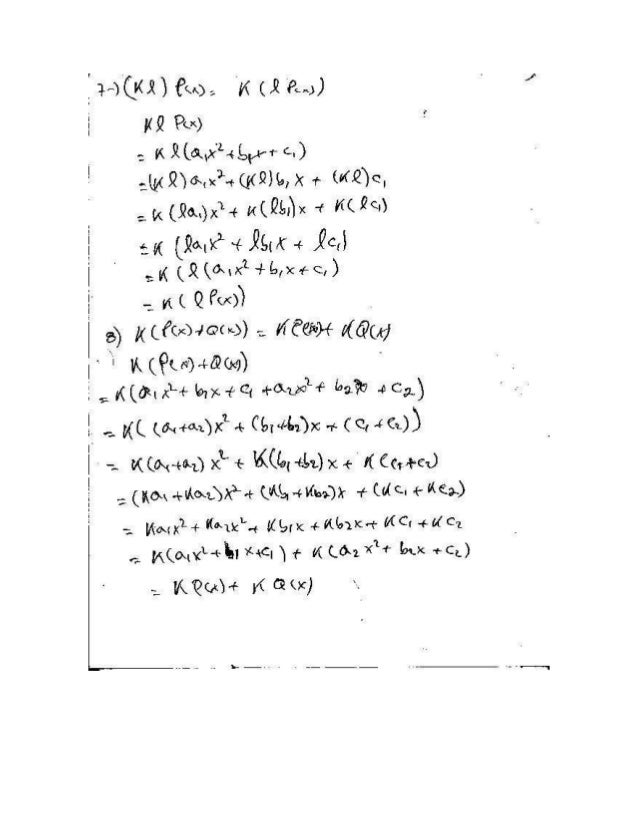 7-) (Kl) P(x) = K (l P(x))
Kl P(x)
= Kl(a₁x² + b₁x + c₁)
= (Kl)a₁x² + (Kl)b₁x + (Kl)c₁
= K(la₁)x² + K(lb₁)x + K(lc₁)
= K (la₁x² + lb₁x + lc₁)
= K (l(a₁x² + b₁x + c₁)
= K (l P(x))
8) K(P(x)+Q(x)) = K P(x) + K Q(x)
K (P(x)+Q(x))
= K(a₁x² + b₁x + c₁ + a₂x² + b₂x + c₂)
= K( (a₁+a₂)x² + (b₁+b₂)x + (c₁+c₂))
= K(a₁+a₂)x² + K(b₁+b₂)x + K(c₁+c₂)
= (Ka₁+Ka₂)x² + (Kb₁+Kb₂)x + (Kc₁+Kc₂)
= Ka₁x² + Ka₂x² + Kb₁x + Kb₂x + Kc₁ + Kc₂
= K(a₁x² + b₁x + c₁) + K(a₂x² + b₂x + c₂)
= K P(x) + K Q(x)